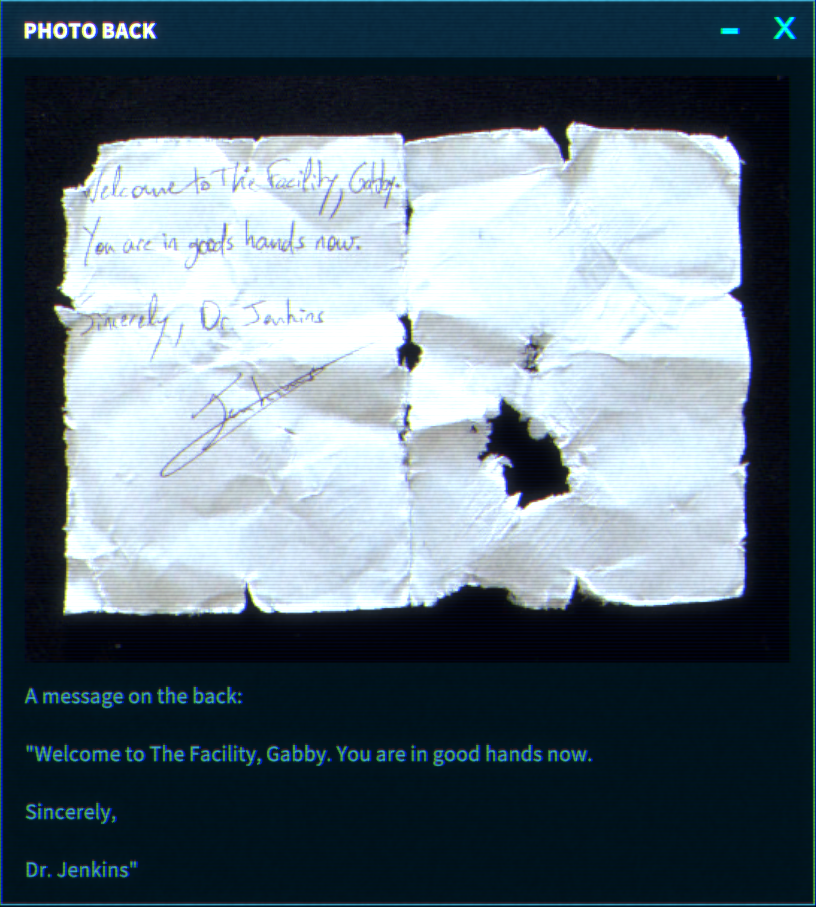 PHOTO BACK
Welcome to The Facility, Gabby.
You are in goods hands now.
Sincerely, Dr. Jenkins
Jenkins
A message on the back:
"Welcome to The Facility, Gabby. You are in good hands now.
Sincerely,
Dr. Jenkins"